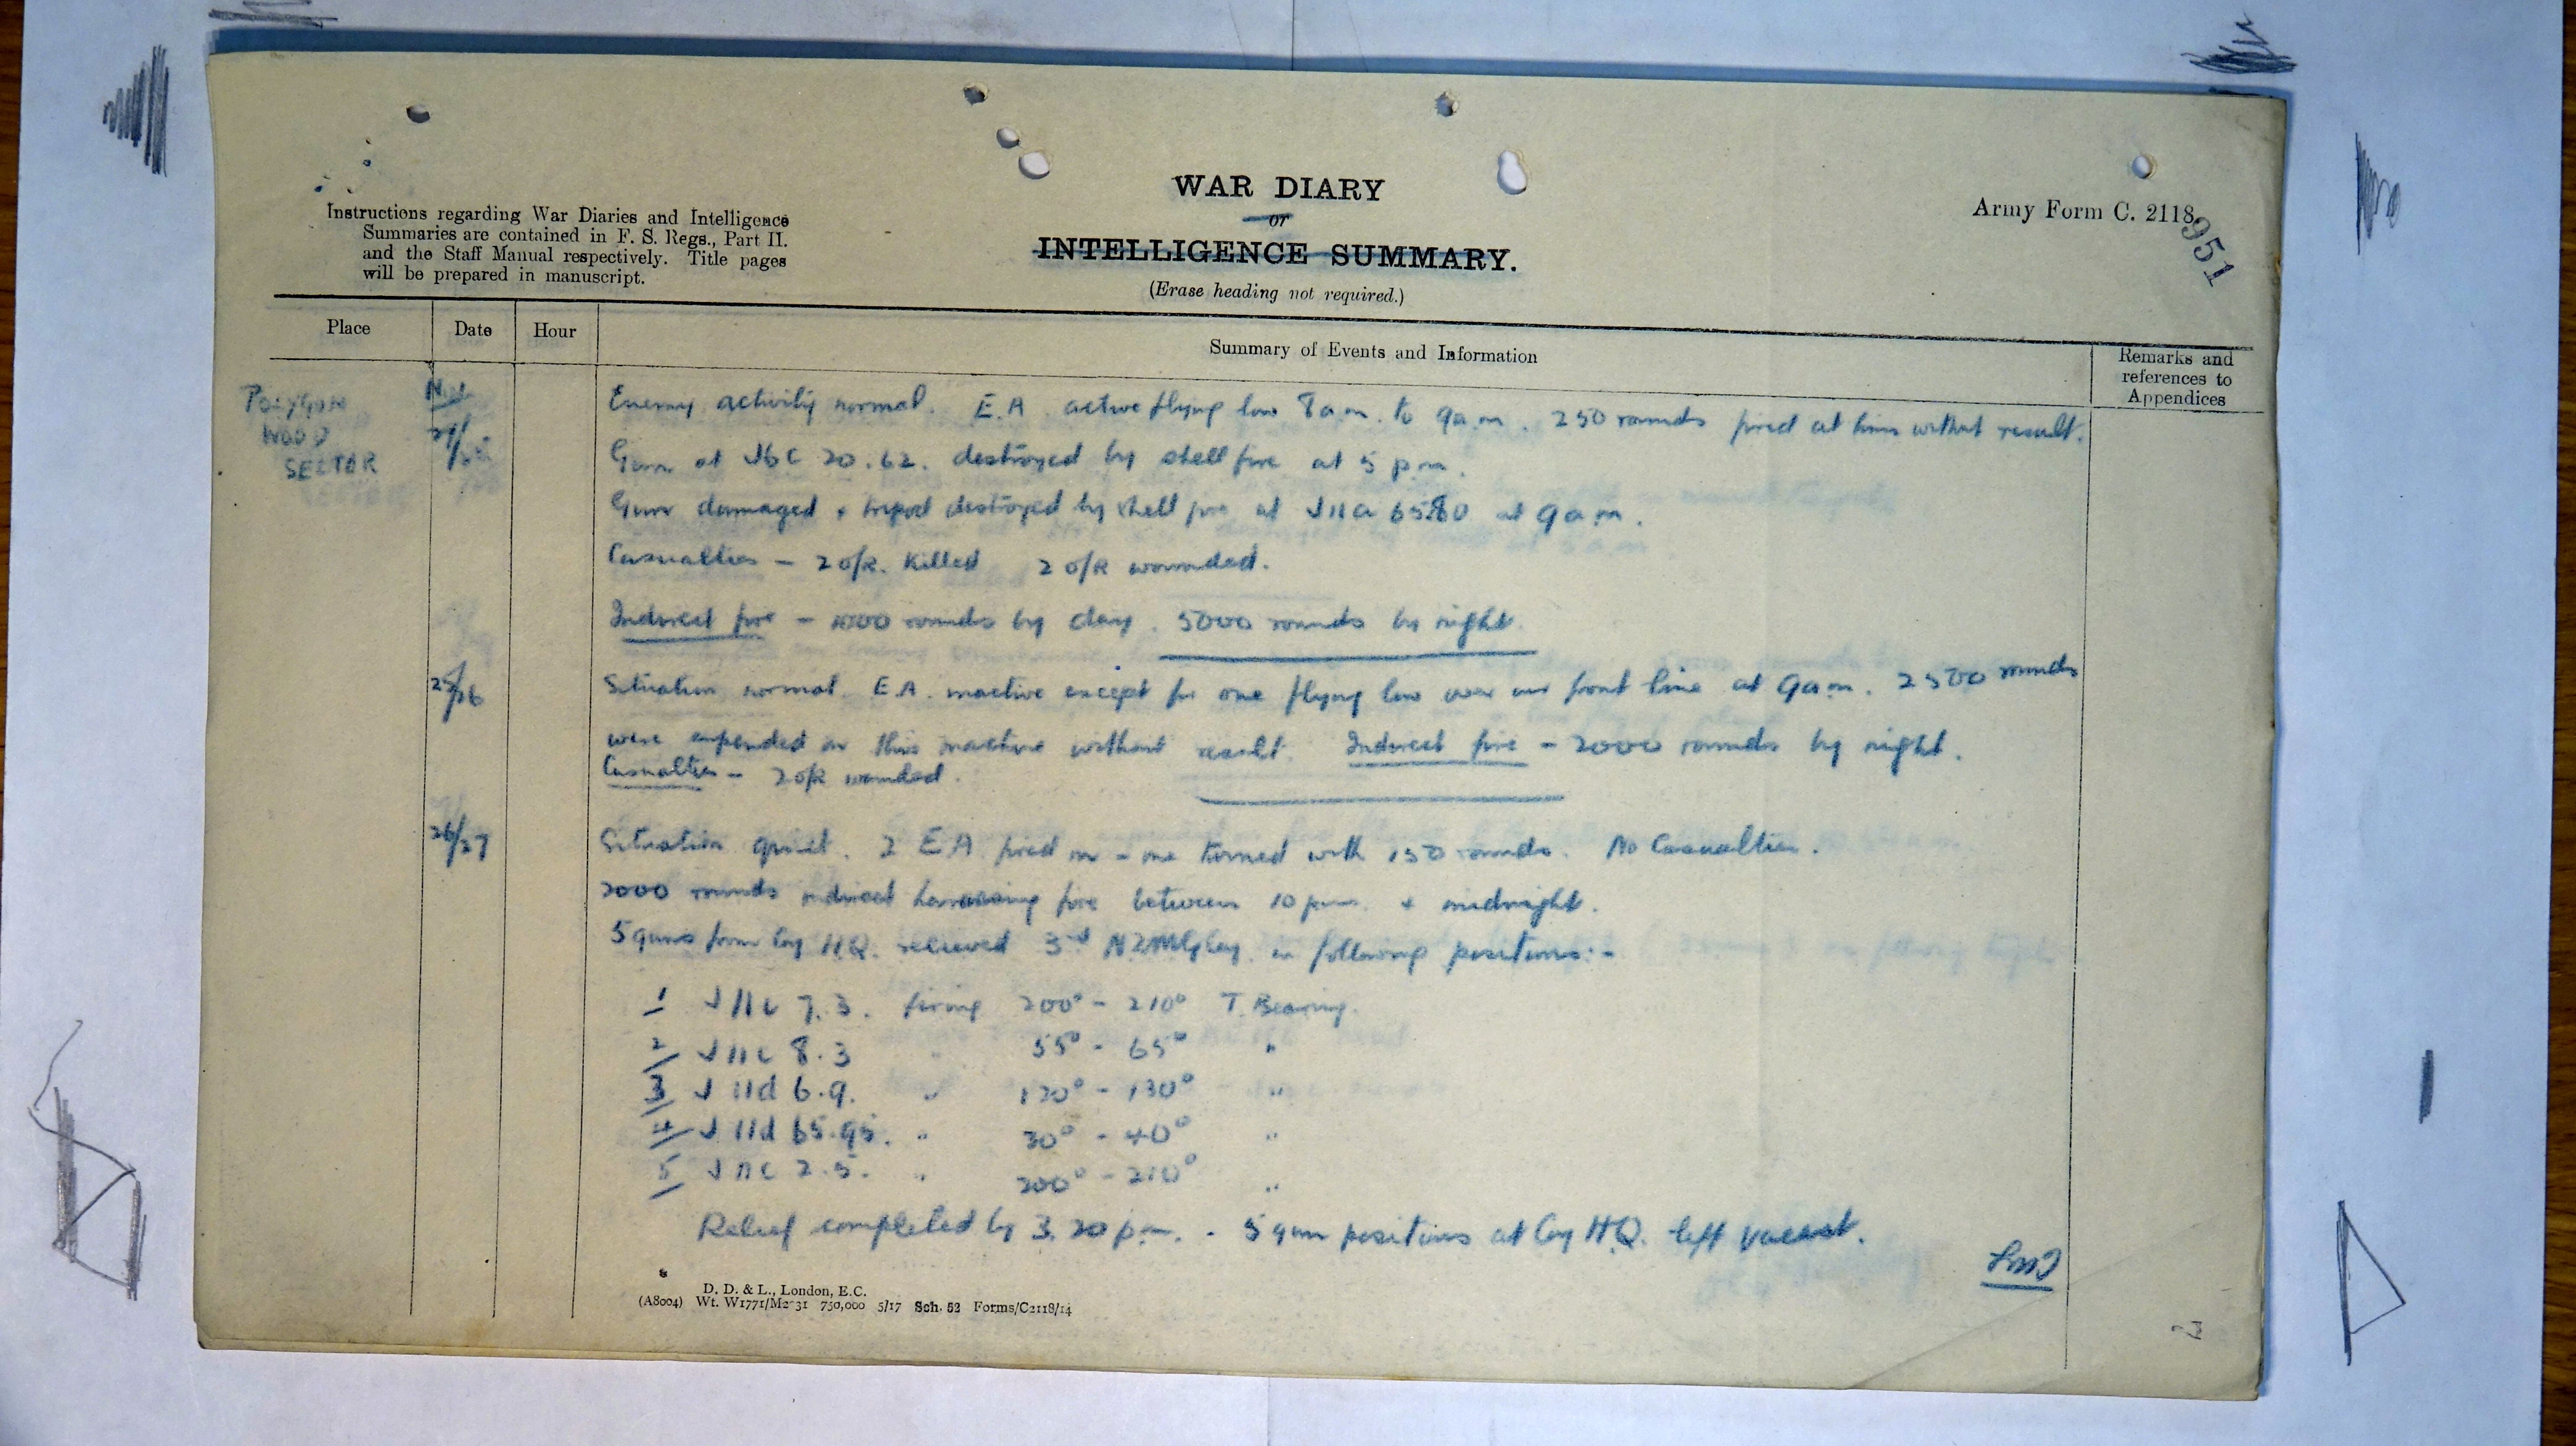 WAR DIARY
or
INTELLIGENCE SUMMARY.
(Erase heading not required.)
Instructions regarding War Diaries and Intelligence
Summaries are contained in F. S. Regs., Part II.
and the Staff Manual respectively. Title pages
will be prepared in manuscript.
Army Form C. 2118.
951
Place Date Hour Summary of Events and Information Remarks and references to Appendices
POLYGON
WOOD
SECTOR
Nov.
24/25
Enemy activity normal. E.A. active flying low 8 a.m. to 9 a.m. 250 rounds fired at him without result.
Gun at J6c 20.62. destroyed by shell fire at 5 p.m.
Gun damaged + tripod destroyed by shell fire at J11a 65.80 at 9 a.m.
Casualties – 2 o/R. Killed 2 o/R wounded.
Indirect fire – 1000 rounds by day. 5000 rounds by night.
25/26 Situation normal. E.A. inactive except for one flying low over our front line at 9 a.m. 2500 rounds
were expended on this machine without result. Indirect fire – 2000 rounds by night.
Casualties – 2 o/R wounded.
26/27 Situation quiet. 2 E.A. fired on – one turned with 150 rounds. No Casualties.
2000 rounds indirect harrassing fire between 10 p.m. + midnight.
5 guns from Coy H.Q. relieved 3rd N.Z.M.G. Coy. in following positions:-
1 J11c 7.3. firing 200° - 210° T. Bearing.
2 J11c 8.3 " 55° - 65° "
3 J11d 6.9. " 120° - 130° "
4 J11d 65.95. " 30° - 40° "
5 J11c 2.5. " 200° - 210° "
Relief completed by 3.20 p.m. - 5 gun positions at Coy H.Q. left vacant.
D. D. & L., London, E.C.
(A8004) Wt. W1771/M2 31 750,000 5/17 Sch. 52 Forms/C2118/14